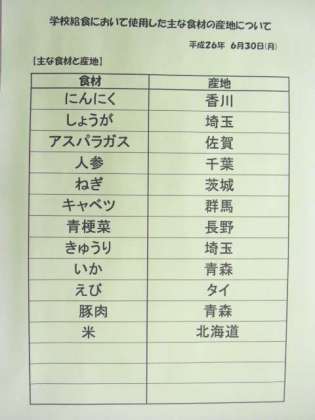 学校給食において使用した主な食材の産地について
平成26年 6月30日(月)
【主な食材と産地】
食材 産地
にんにく 香川
しょうが 埼玉
アスパラガス 佐賀
人参 千葉
ねぎ 茨城
キャベツ 群馬
青梗菜 長野
きゅうり 埼玉
いか 青森
えび タイ
豚肉 青森
米 北海道